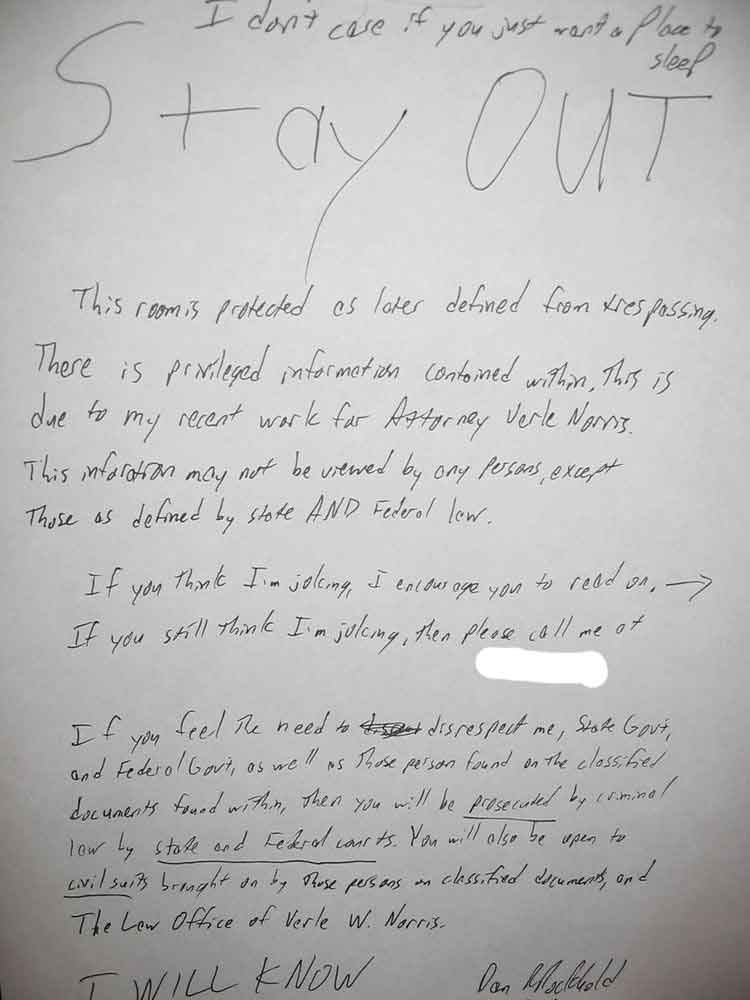 I don't case if you just want a Place to
sleep
Stay OUT
This room is protected as later defined from trespassing.
There is privileged information contained within, This is
due to my recent work for Attorney Verle Norris.
This inforation may not be viewed by any Persons, except
Those as defined by state AND Federal law.
If you think I'm joking, I encourage you to read on. →
If you still think I'm joking, then please call me at
If you feel The need to disrespect me, State Gov't,
and Federal Gov't, as well as Those person found on the classified
documents found within, then you will be prosecuted by criminal
law by state and Federal courts. You will also be open to
civil suits brought on by Those persons on classified documents, and
The Law Office of Verle W. Norris.
I WILL KNOW Dan